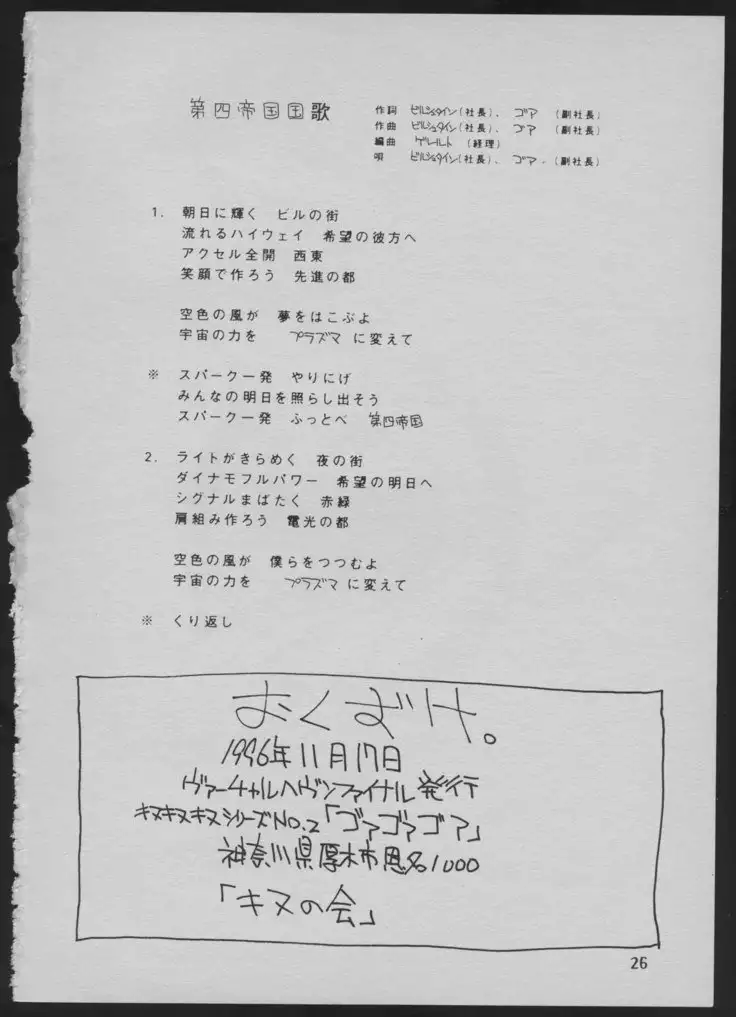 第四帝国国歌
作詞 ビルシュタイン(社長)、ゴア (副社長)
作曲 ビルシュタイン(社長)、ゴア (副社長)
編曲 ゲレルト (経理)
唄 ビルシュタイン(社長)、ゴア・(副社長)
1. 朝日に輝く ビルの街
流れるハイウェイ 希望の彼方へ
アクセル全開 西東
笑顔で作ろう 先進の都
空色の風が 夢をはこぶよ
宇宙の力を プラズマ に変えて
※ スパーク一発 やりにげ
みんなの明日を照らし出そう
スパーク一発 ふっとべ 第四帝国
2. ライトがきらめく 夜の街
ダイナモフルパワー 希望の明日へ
シグナルまばたく 赤緑
肩組み作ろう 電光の都
空色の風が 僕らをつつむよ
宇宙の力を プラズマ に変えて
※ くり返し
おくづけ。
1996年11月17日
ヴァーチャルヘヴンファイナル発行
キヌキヌキヌシリーズNO.2「ゴァゴァゴア」
神奈川県厚木市恩名1000
「キヌの会」
26